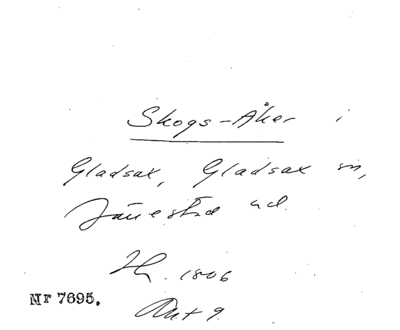 Skogs-Åker i
Gladsax, Gladsax sn,
Järrestad hd.
Hh. 1806
Nr 7695.
Akt 9.